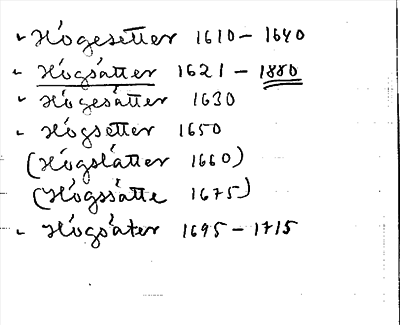 Högesetter 1610 - 1640
Högsätter 1621 - 1880
Högesätter 1630
Högsetter 1650
(Högslätter 1660)
(Högssätte 1675)
Högsäter 1695 - 1715